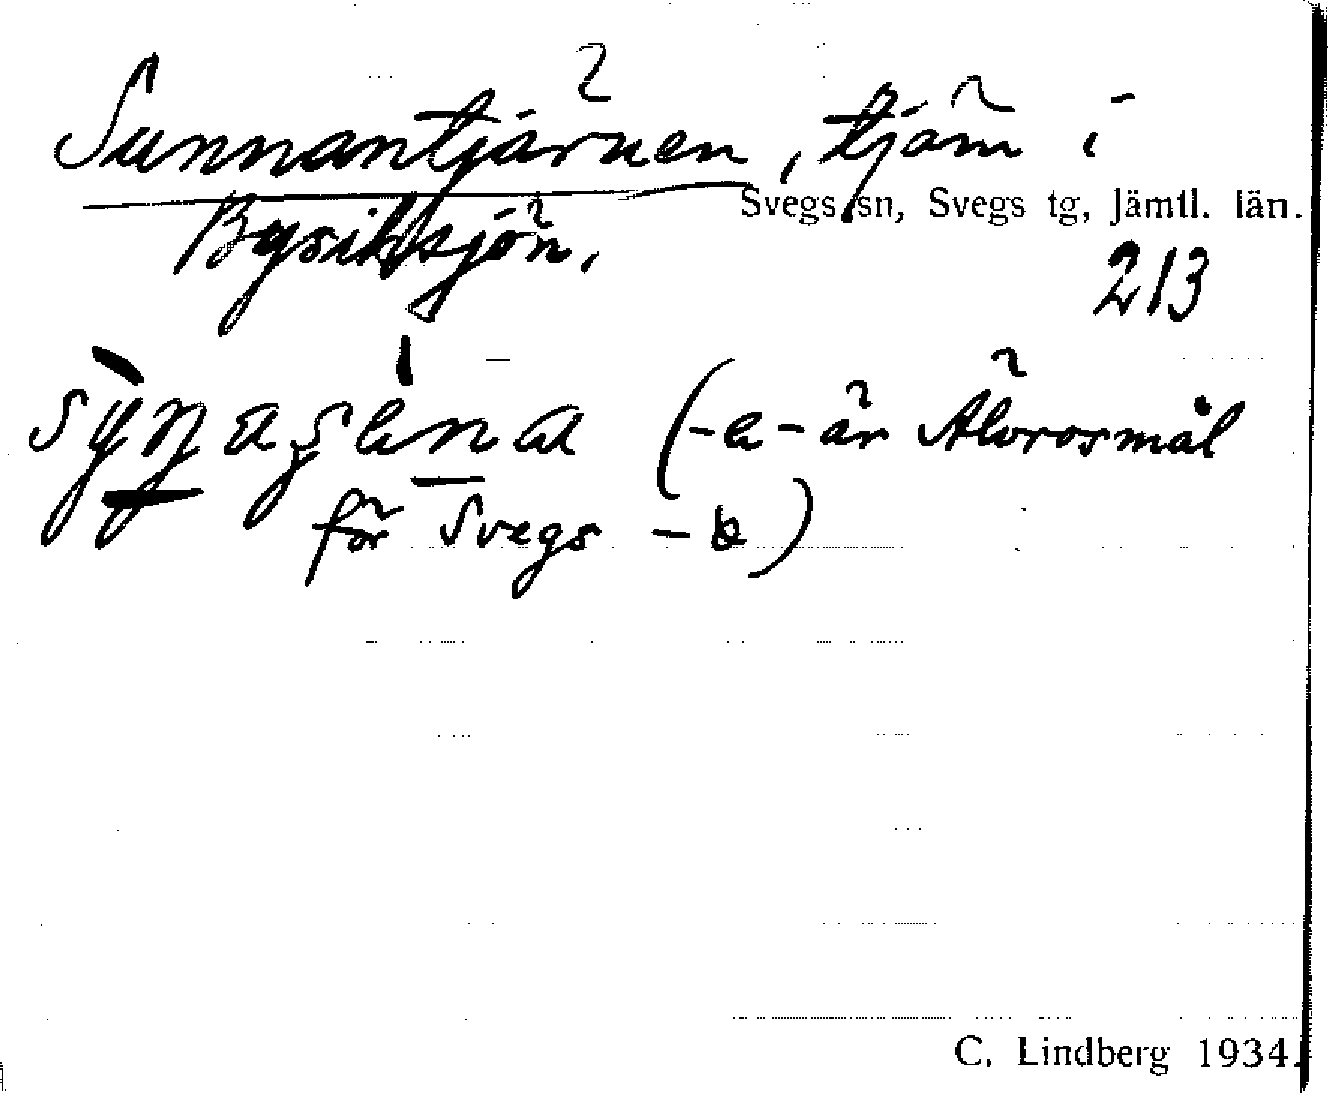 Sunnantjärnen, tjärn i
Svegs sn, Svegs tg, Jämtl. län.
Bysiktsjön.
213
(-a- är Älvrosmål
för Svegs -
C. Lindberg 1934.